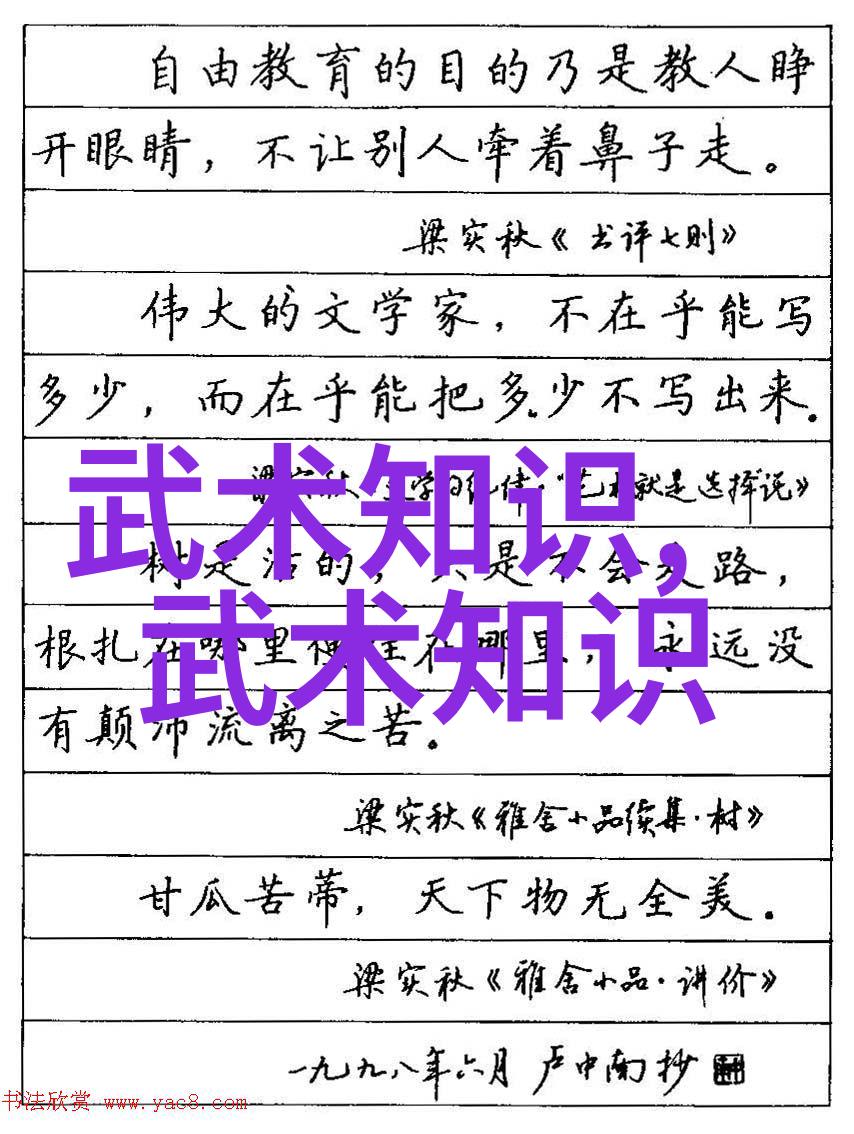 自由教育的目的乃是教人睁
开眼睛，不让别人牵着鼻子走。
梁实秋《书评七则》
伟大的文学家，不在乎能写
多少，而在乎能把多少不写出来。
就是选择说》
武术知识，
树是活的，只是不会走路，
根扎在哪里便住在哪里，永远没
武术知识
有颠沛流离之苦。
梁实秋《雅舍小品续集·树》
甘瓜苦蒂，天下物无全美。
梁实秋《雅舍小品·讲价》
一九九八年六月 卢中南抄
书法欣赏 www.yac8.com